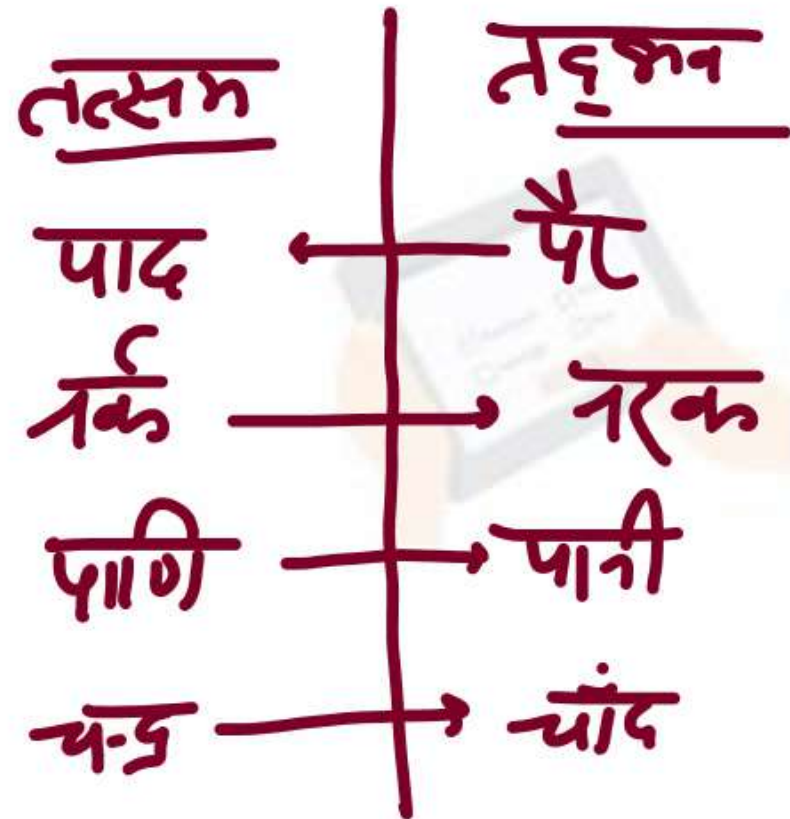 तत्सम तद्भव
पाद ← पैर
नर्क → नरक
पाणि → पानी
चन्द्र → चांद